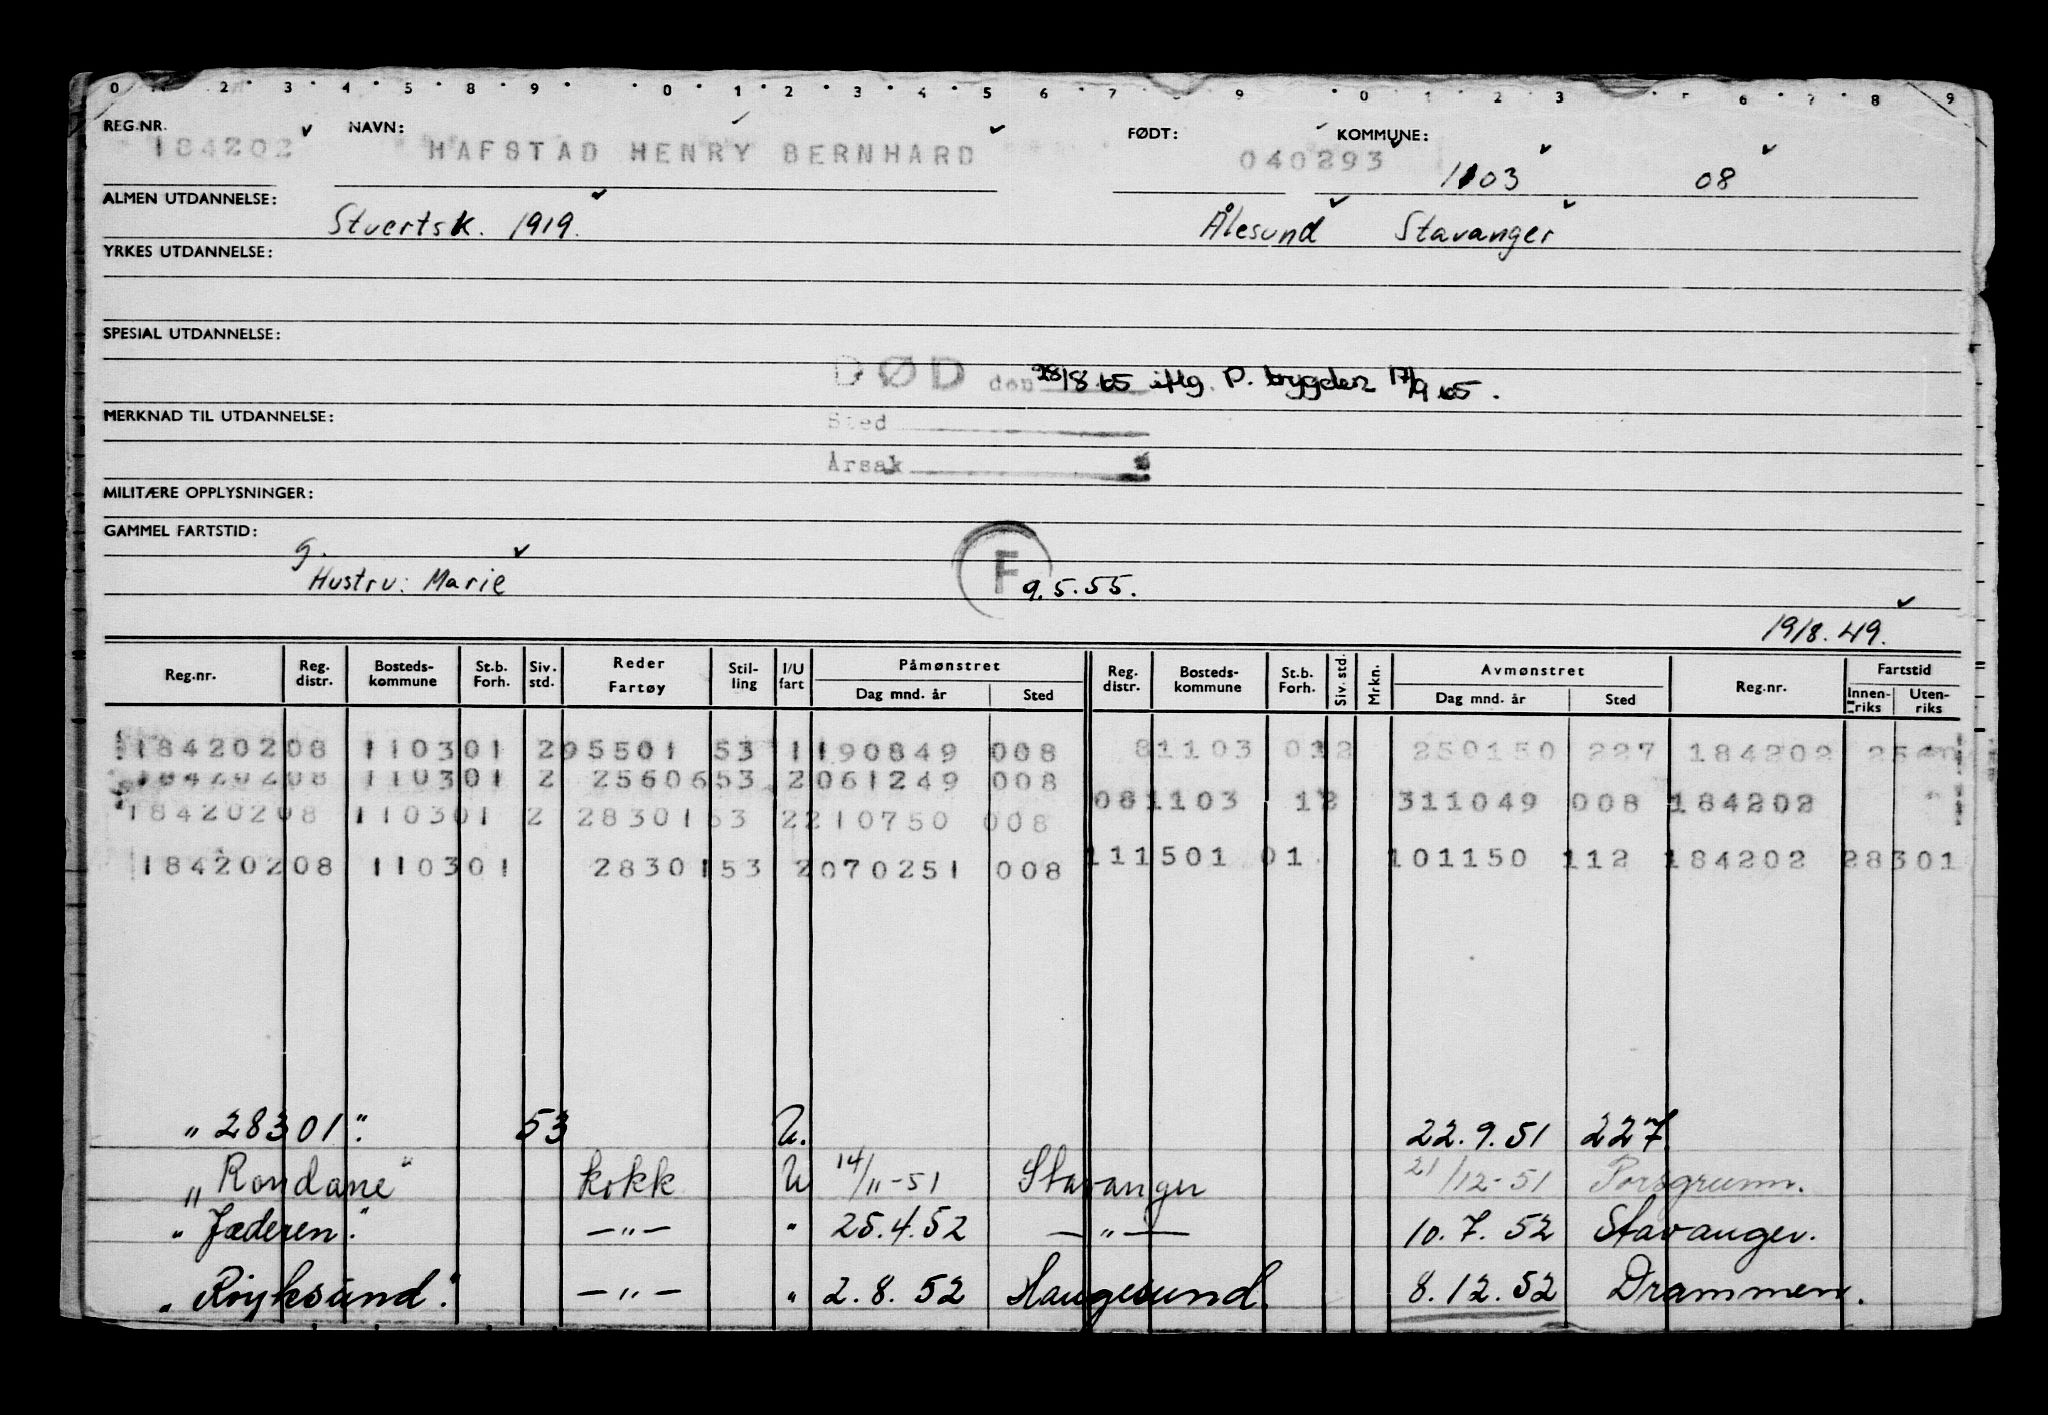 0 2 3 4 5 8 9 0 1 2 3 4 5 6 7 9 0 1 2 3 6 7 8 9
REG.NR. NAVN: FØDT: KOMMUNE:
184202 HAFSTAD HENRY BERNHARD 040293 1103 08
ALMEN UTDANNELSE: Stuertsk. 1919. Ålesund Stavanger
YRKES UTDANNELSE:
SPESIAL UTDANNELSE:
DØD den 28/8.65 iflg. P. trygden 17/9 65.
MERKNAD TIL UTDANNELSE: Sted
Årsak
MILITÆRE OPPLYSNINGER:
GAMMEL FARTSTID:
g.
Hustru: Marie F 9.5.55.
19/8.49.
Reg.nr. Reg. distr. Bosteds-kommune St.b. Forh. Siv. std. Reder Fartøy Stil-ling I/U fart Påmønstret Dag mnd. år Sted Reg. distr. Bosteds-kommune St.b. Forh. Siv. std. Mrkn. Avmønstret Dag mnd. år Sted Reg.nr. Fartstid Innen-riks Uten-riks
18420208 110301 295501 53 1190849 008 81103 012 250150 227 184202
18420208 110301 2 2560653 2061249 008
081103 12 311049 008 184202
18420208 110301 2 2830153 2210750 008
111501 01 101150 112 184202 28301
18420208 110301 2830153 2070251 008
„ 28301". 53 U. 22.9.51 227.
„ Rondane" kokk U 14/11-51 Stavanger 21/12-51 Porsgrunn.
„ Jæderen". —„— " 25.4.52 —„— 10.7.52 Stavanger.
„ Røyksund". —„— " 2.8.52 Haugesund. 8.12.52 Drammen.